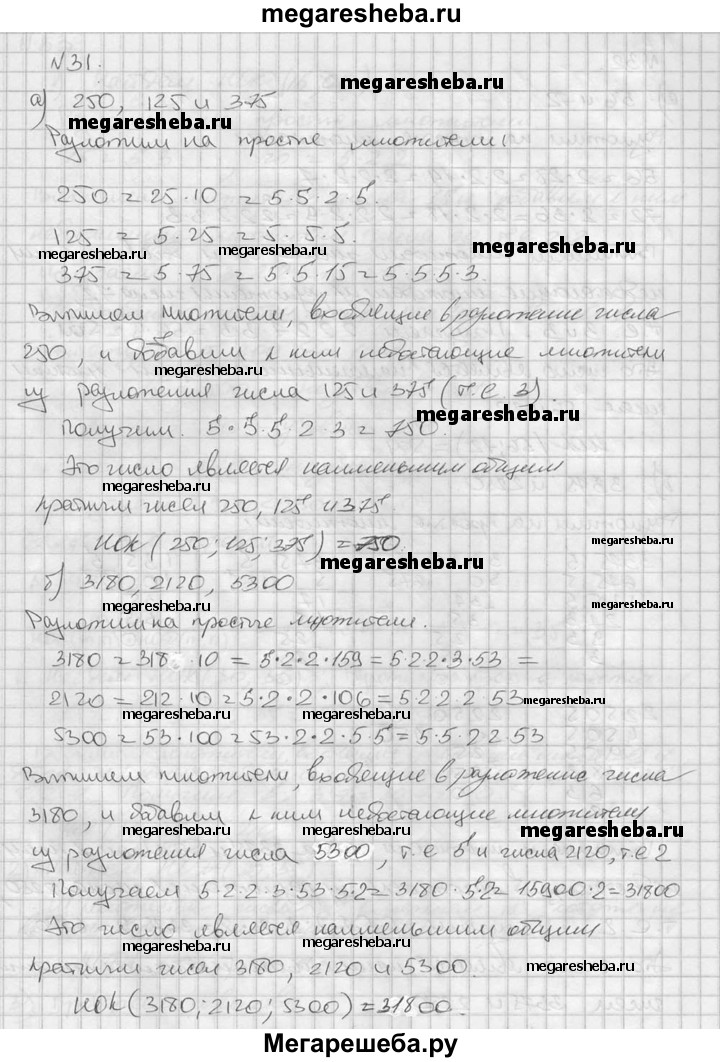 megaresheba.ru
№31.
megaresheba.ru
а) 250, 125 и 375.
megaresheba.ru
Разложим на простые множители:
250 = 25·10 = 5·5·2·5.
125 = 5·25 = 5·5·5.
megaresheba.ru megaresheba.ru megaresheba.ru
375 = 5·75 = 5·5·15 = 5·5·5·3.
Выпишем множители, входящие в разложение числа
250, и добавим к ним недостающие множители
megaresheba.ru
из разложения числа 125 и 375 (т.е. 3).
megaresheba.ru
Получим. 5·5·5·2·3 = 750.
Это число является наименьшим общим
megaresheba.ru megaresheba.ru
кратным чисел 250, 125 и 375.
НОК (250; 125; 375) = 750.
megaresheba.ru
megaresheba.ru
б) 3180, 2120, 5300
megaresheba.ru megaresheba.ru
Разложим на простые множители.
3180 = 318·10 = 5·2·2·159 = 5·2·2·3·53 =
2120 = 212·10 = 5·2·2·106 = 5·2·2·2·53
megaresheba.ru
megaresheba.ru megaresheba.ru
5300 = 53·100 = 53·2·2·5·5 = 5·5·2·2·53
Выпишем множители, входящие в разложение числа
3180, и добавим к ним недостающие множители
megaresheba.ru megaresheba.ru megaresheba.ru
из разложения числа 5300, т.е 5 и числа 2120, т.е 2
Получаем 5·2·2·3·53·5·2 = 3180·5·2 = 15900·2 = 31800
Это число является наименьшим общим
megaresheba.ru megaresheba.ru
кратным чисел 3180, 2120 и 5300.
megaresheba.ru
НОК (3180; 2120; 5300) = 31800.
Мегарешеба.ру